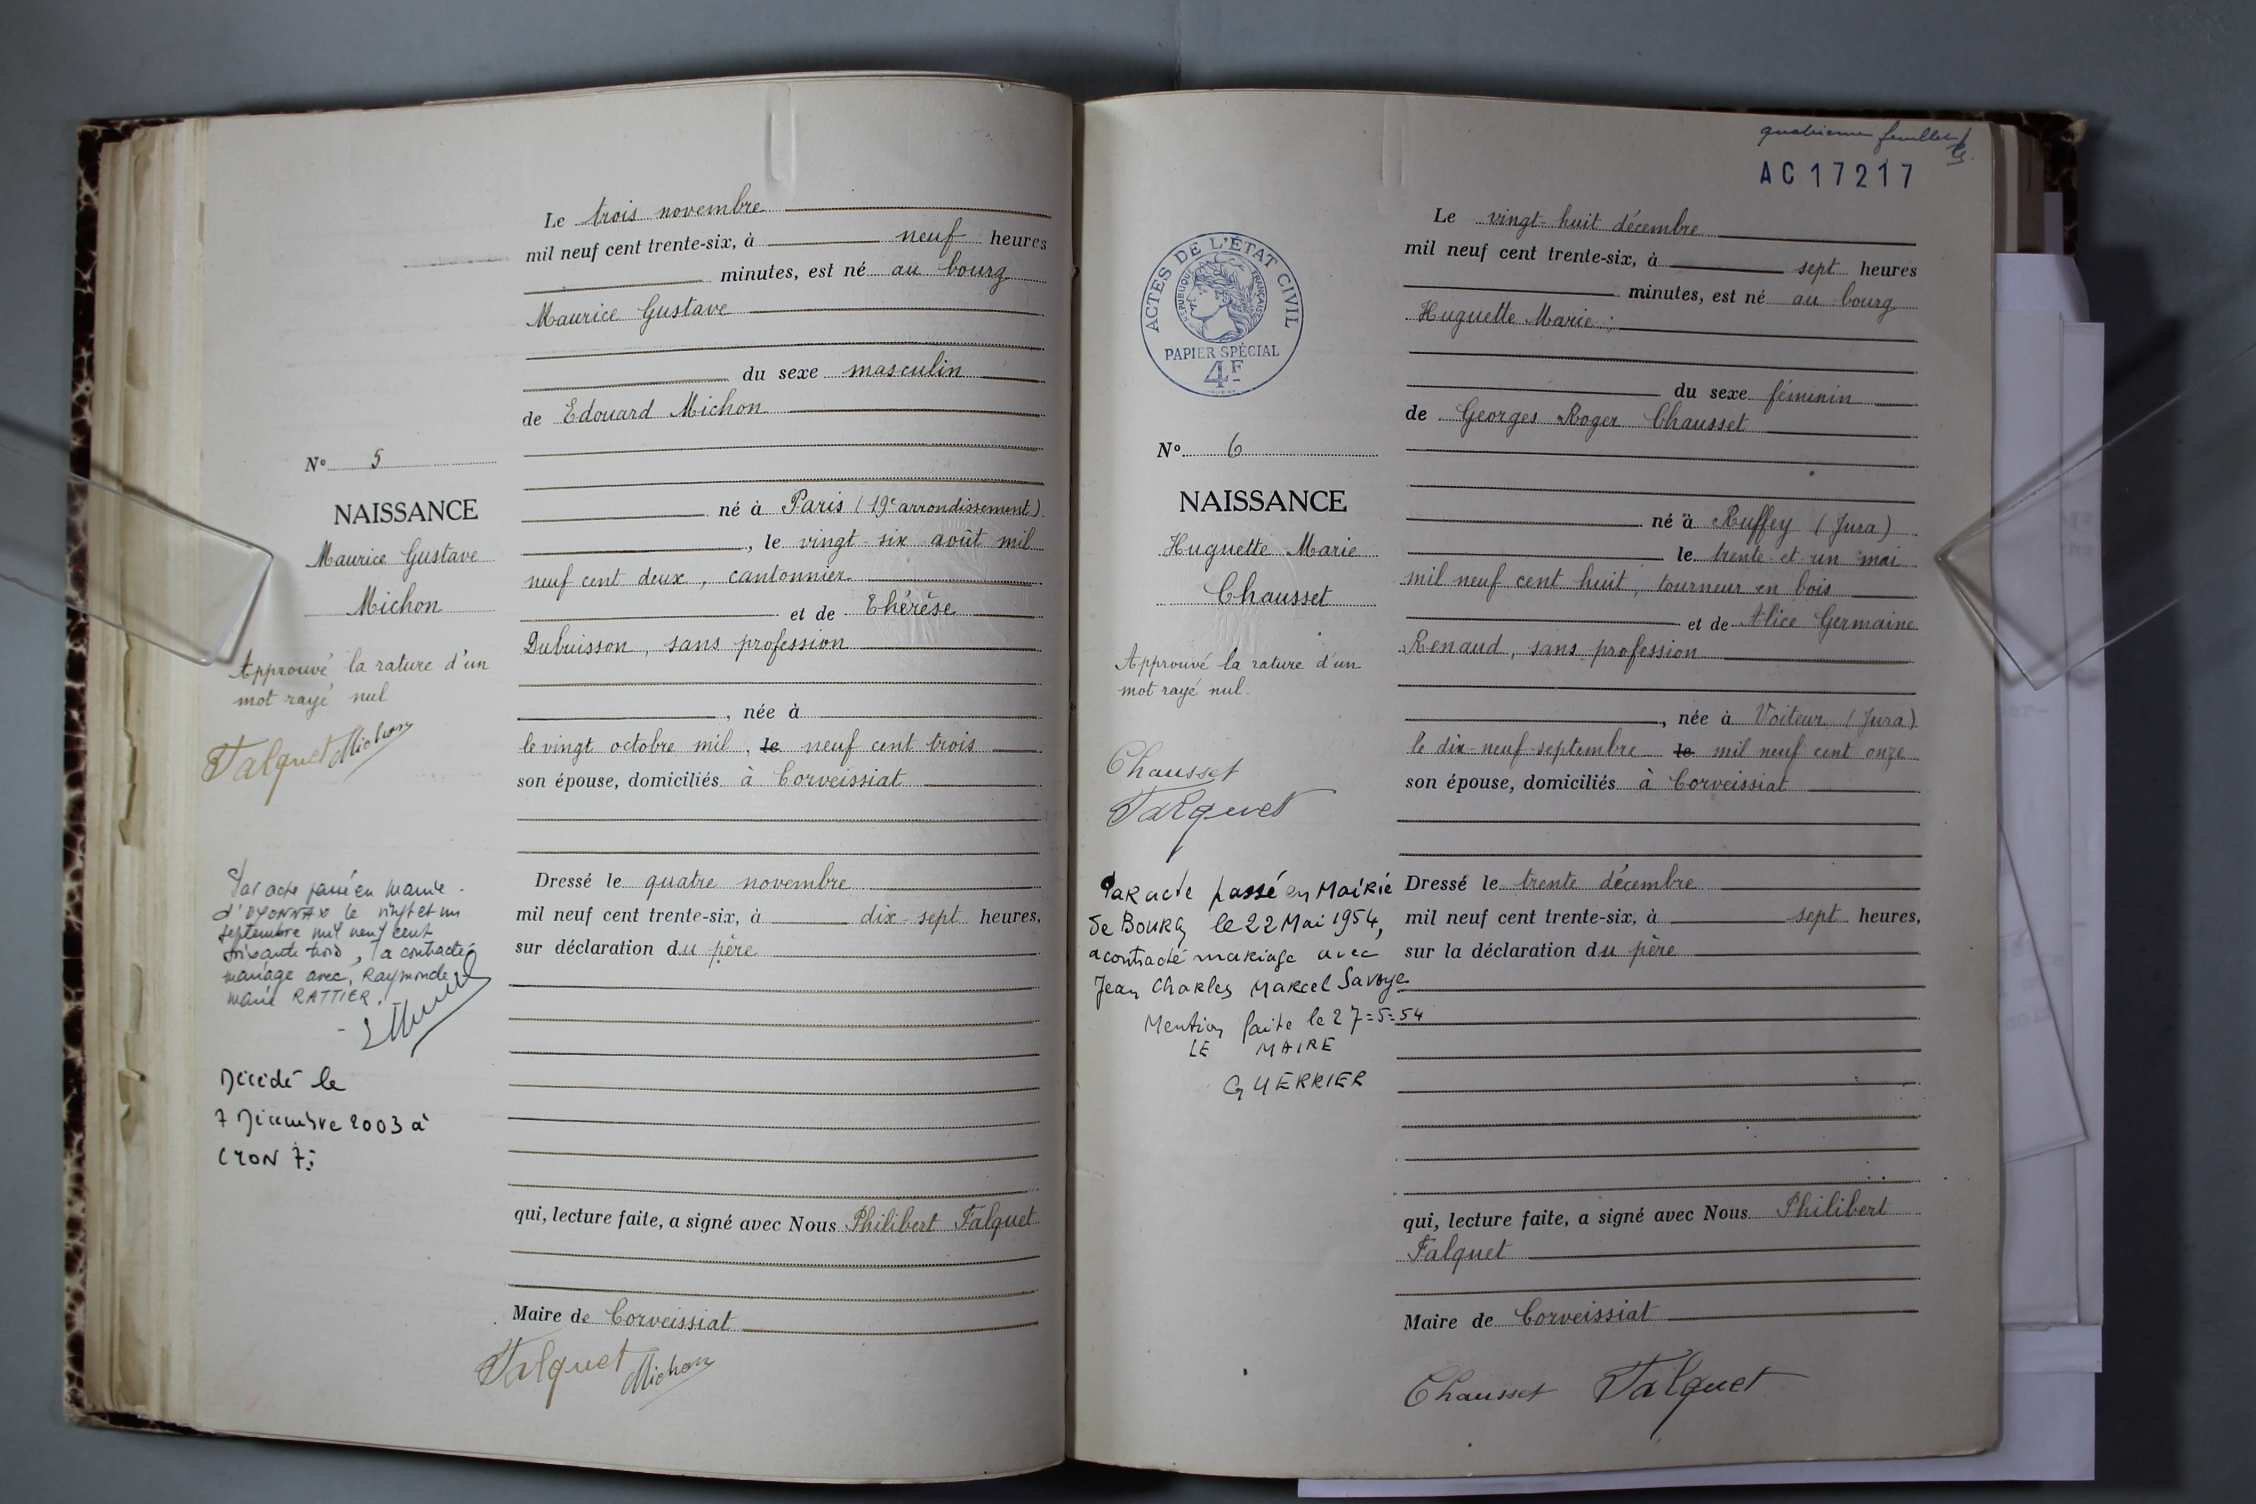 Le trois novembre
mil neuf cent trente-six, à neuf heures
minutes, est né au bourg
Maurice Gustave
du sexe masculin
de Edouard Michon
né à Paris (19e arrondissement)
, le vingt-six août mil
neuf cent deux, cantonnier
et de Thérèse
Dubuisson, sans profession
, née à
le vingt octobre mil, le neuf cent trois
son épouse, domiciliés à Corveissiat
Dressé le quatre novembre
mil neuf cent trente-six, à dix-sept heures,
sur déclaration du père
qui, lecture faite, a signé avec Nous Philibert Falquet
Maire de Corveissiat
Falquet Michon
No 5
NAISSANCE
Maurice Gustave
Michon
Approuvé la rature d'un
mot rayé nul
Falquet Michon
Par acte passé en Mairie
d'OYONNAX le vingt et un
septembre mil neuf cent
soixante trois, a contracté
mariage avec Raymonde
Marie RATTIER.
Décédé le
7 Décembre 2003 à
quatrième feuillet
AC 17217
ACTES DE L'ÉTAT CIVIL
RÉPUBLIQUE FRANÇAISE
PAPIER SPÉCIAL
4F
No 6
NAISSANCE
Huguette Marie
Chausset
Approuvé la rature d'un
mot rayé nul.
Chausset
Falquet
Par acte passé en Mairie
de BOURG le 22 Mai 1954,
a contracté mariage avec
Jean Charles Marcel Savoye
Mention faite le 27=5=54
LE MAIRE
GUERRIER
Le vingt-huit décembre
mil neuf cent trente-six, à sept heures
minutes, est né au bourg
Huguette Marie
du sexe féminin
de Georges Roger Chausset
né à Ruffey (Jura)
le trente-et-un mai
mil neuf cent huit, tourneur en bois
et de Alice Germaine
Renaud, sans profession
, née à Voiteur (Jura)
le dix-neuf septembre le mil neuf cent onze
son épouse, domiciliés à Corveissiat
Dressé le trente décembre
mil neuf cent trente-six, à sept heures,
sur la déclaration du père
qui, lecture faite, a signé avec Nous Philibert
Falquet
Maire de Corveissiat
Chausset Falquet